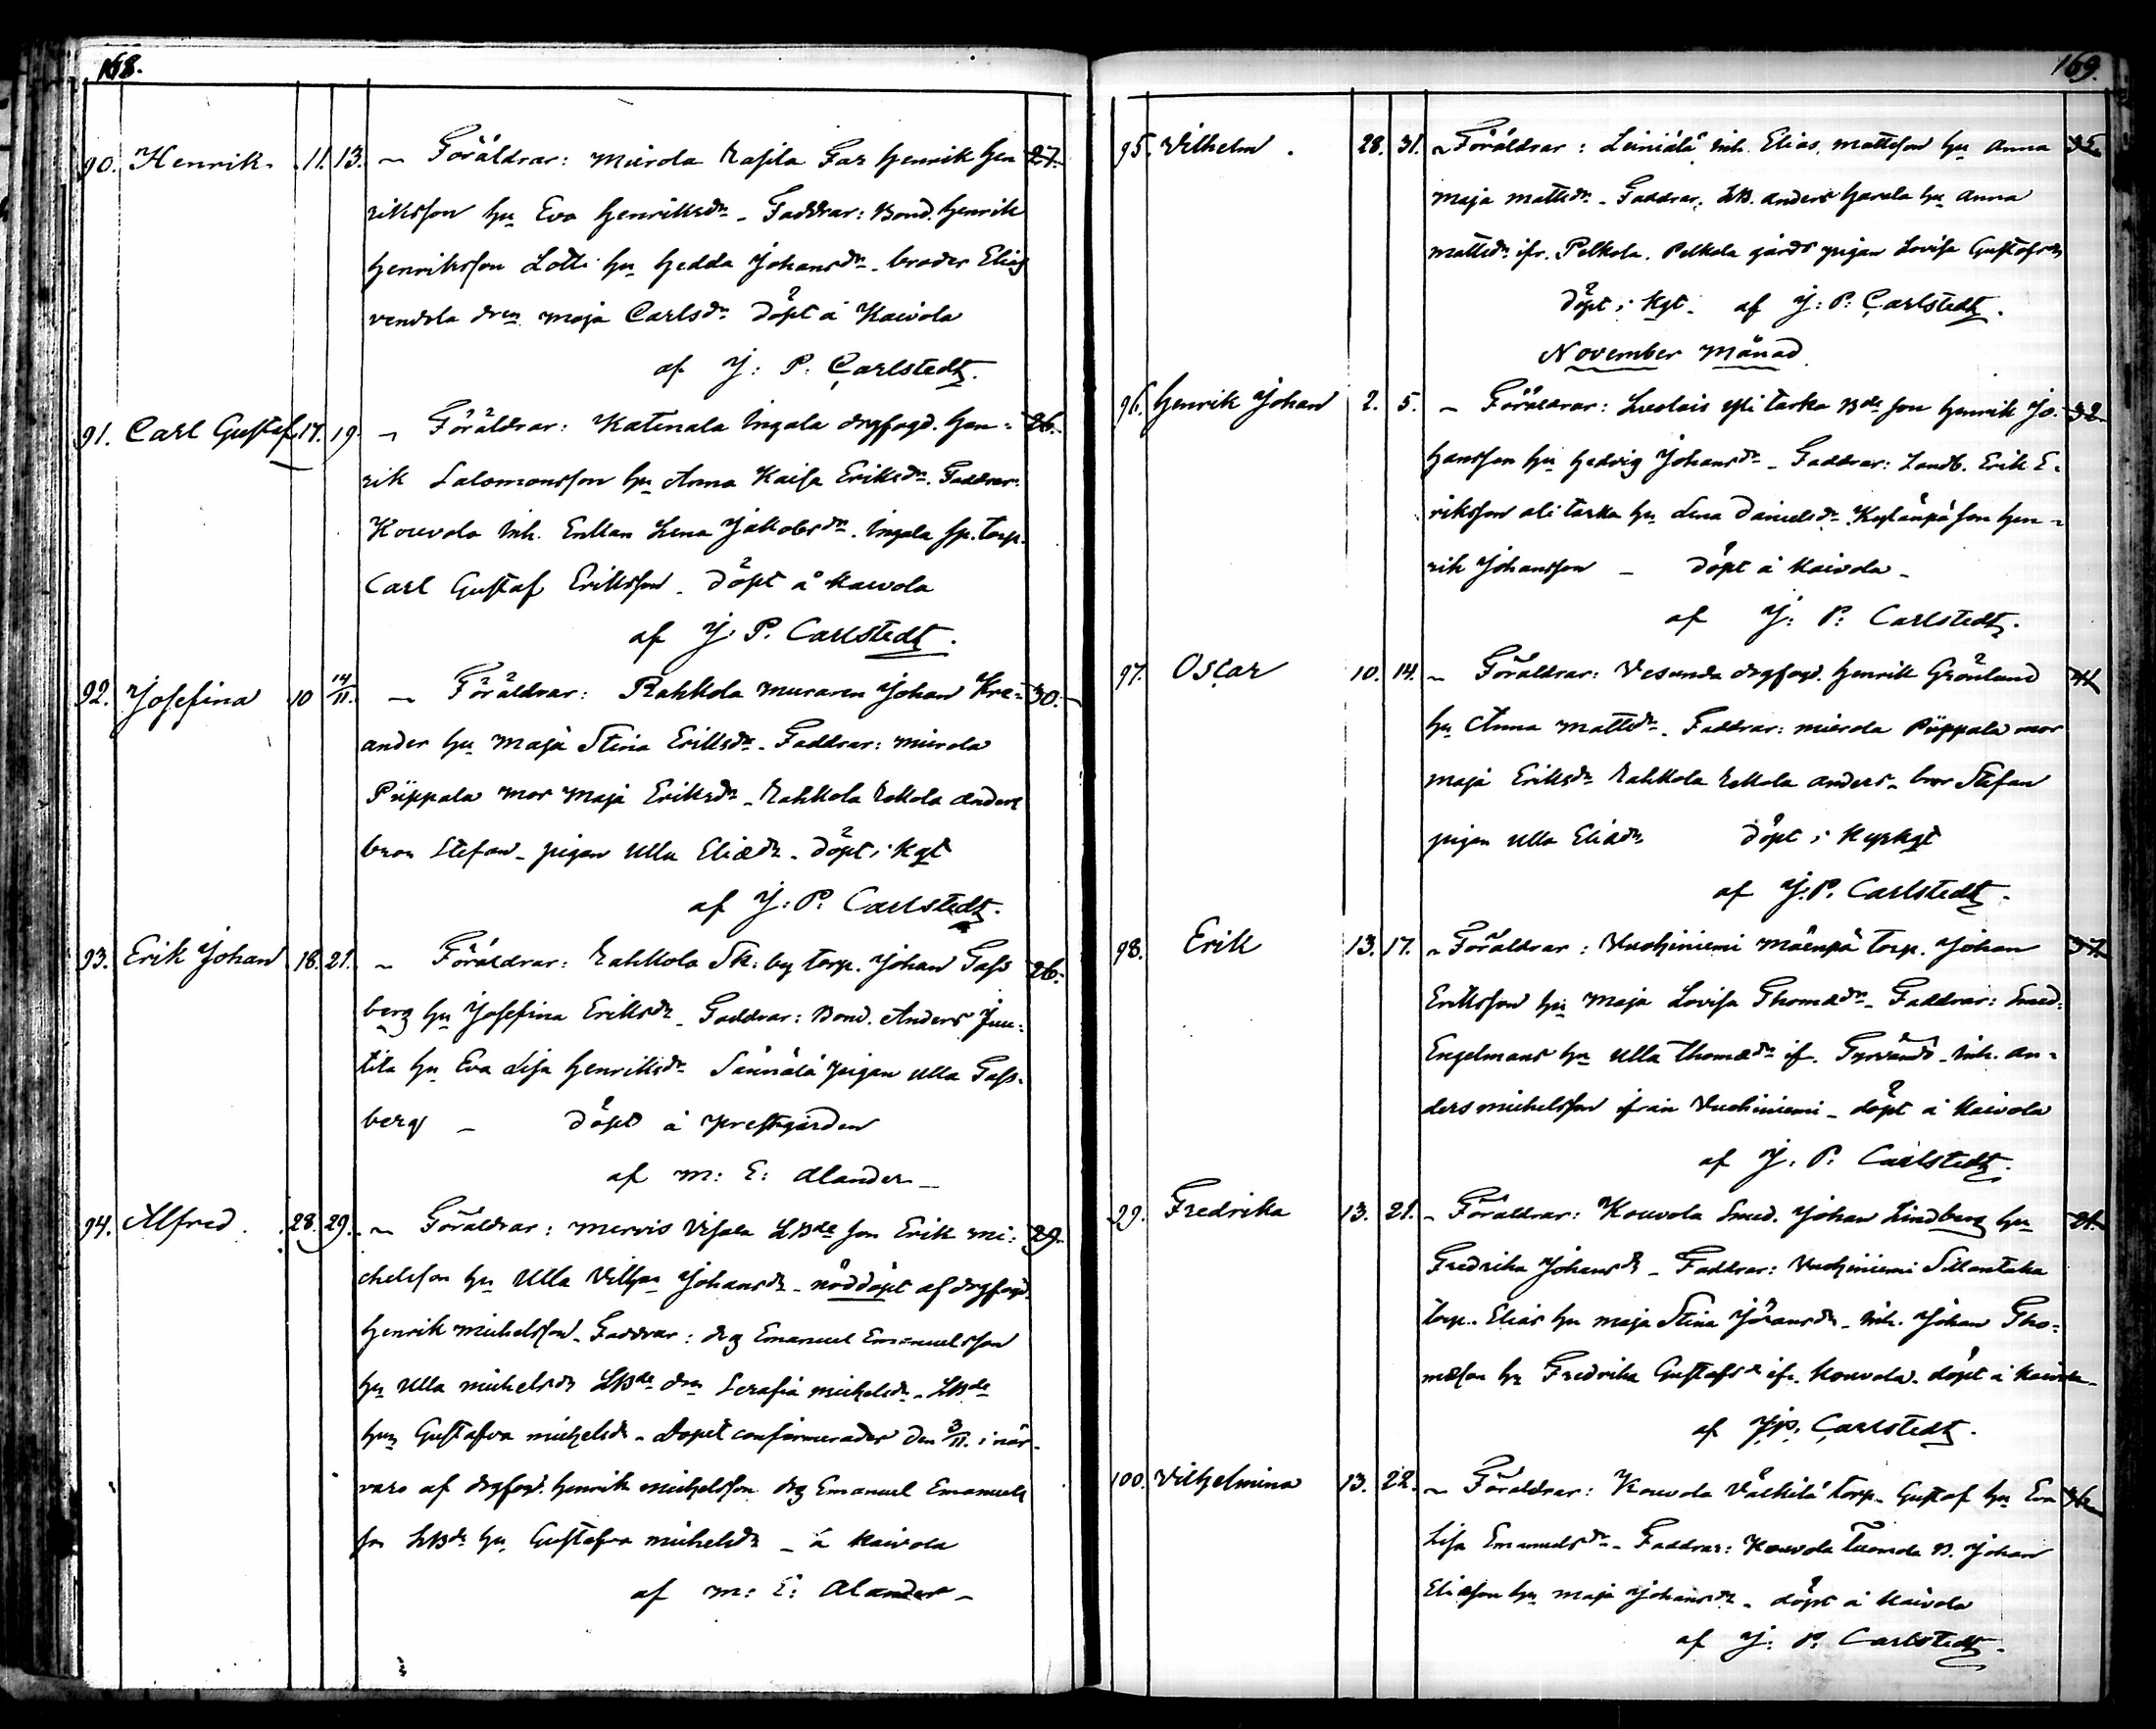 168.
90. Henrik. 11. 13. – Föräldrar: Mierola Rasila Far Henrik Hen 27.
riksson hu Eva Henriksdr – Faddrar: Bond. Henrik
Henriksson Lotti hu Hedda Johansdr. broder Elias
dren Maja Carlsdr Döpt å Kaivola
af J: P. Carlstedt.
91. Carl Gustaf 17. 19. – Föräldrar: Katinala Ingala drgfogd. Hen= 26.
rik Salomonsson hu Anna Kaisa Eriksdr. Faddrar:
Kouvola Inh. Enkan Lena Jakobsdr. Ingala torp.
Carl Gustaf Eriksson. Döpt å Kaivola
af J. P. Carlstedt.
92. Josefina 10 14/11. – Föräldrar: Rahkola muraren Johan 30.
ander hu Maja Stina Eriksdr. Faddrar: Mierola
Piippala mor Maja Eriksdr – Rahkola Eskola Anders
bror Stefan – pigan Ulla Eliædr. Döpt i Kgt
af J: P: Carlstedt.
93. Erik Johan 18. 21. – Föräldrar: Rahkola Sk: by torp. Johan Gass 26.
berg hu Josefina Eriksdr – Faddrar: Bond. Anders Jun=
tila hu Eva Lisa Henriksdr pigan Ulla Gass=
berg – Döpt å prestgården
af M: E: Alander –
94. Alfred. 28. 29. – Föräldrar: Mervis Visala LBde son Erik Mi= 29.
chelsson hu Ulla Vilhna Johansdr – nöddöpt af drgfogd.
Henrik Michelsson. Faddrar: drg Emanuel Emanuelsson
hu Ulla Michelsdr LBde drn Serafia Michelsdr – LBde
hun Gustafva Michelsdr – Dopet confirmerades den 3/11. i när=
varo af drgfogd. Henrik Michelsson drg Emanuel Emanuels
son LBde hu Gustafva Michelsdr – å Kaivola
af M: E: Alander –
169.
95. Vilhelm. 28. 31. – Föräldrar: Leiniälä Inh. Elias Mattsson hu Anna 35.
Maja Mattsdr. Faddrar: LB. Anders Harala hu Anna
Mattsdr ifr. Pelkola. Pelkola gårds pigan Lovisa Gustafsdr
Döpt i Kgt. af J: P: Carlstedt.
November Månad.
96. Henrik Johan 2. 5. – Föräldrar: Lusdais yli Tarka Bde son Henrik Jo= 32
hansson hu Hedvig Johansdr – Faddrar: Landb. Erik E=
riksson ali Tarka hu Lena Danielsdr. son Hen=
rik Johansson – Döpt å Kaivola –
af J: P: Carlstedt.
97. Oscar 10. 14. – Föräldrar: Vesunda drgfogd. Henrik Grönlund 41
hu Anna Mattsdr. Faddrar: Mierola Piippala mor
Maja Eriksdr Rahkola Eskola Anders – bror Stefan
pigan Ulla Eliædr Döpt i Kyrkgt
af J: P. Carlstedt.
98. Erik 13. 17. – Föräldrar: Vuohiniemi Mäenpä torp. Johan 37.
Eriksson hu Maja Lovisa Thomædr – Faddrar: Smed.
Engelmans hu Ulla Thomædr ifr. Tyrvändö – Inh. An=
ders Michelsson ifrån Vuohiniemi – döpt å Kaivola
af J: P: Carlstedt.
99. Fredrika 13. 21. – Föräldrar: Kouvola Smed. Johan Lindberg hu 21.
Fredrika Johansdr – Faddrar: Vuohiniemi Sillantaka
torp. Elias hu Maja Stina Jöransdr – Inh. Johan Tho=
mæson hu Fredrika Gustafsdr ifr. Kouvola. döpt å Kaivola
af J.P. Carlstedt.
100. Vilhelmina 13. 22. – Föräldrar: Kouvola Välkilä torp. Gustaf hu Eva 36
Lisa Emanuelsdr – Faddrar: Kouvola Tuomola B. Johan
Eliæson hu Maja Johansdr – döpt å Kaivola
af J: P. Carlstedt.